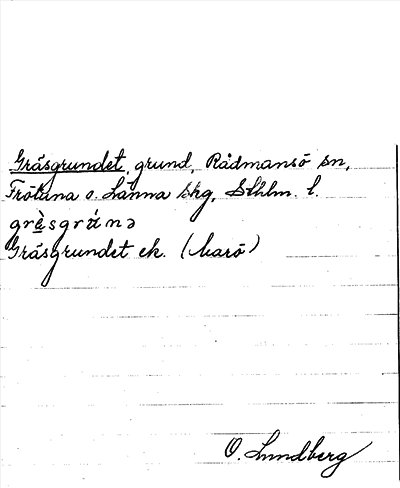 Gräsgrundet, grund, Rådmansö sn,
Frötuna o. Länna skg, Sthlm. l.
grèsgrúnə
Gräsgrundet ek. (Marö)
O. Lundberg